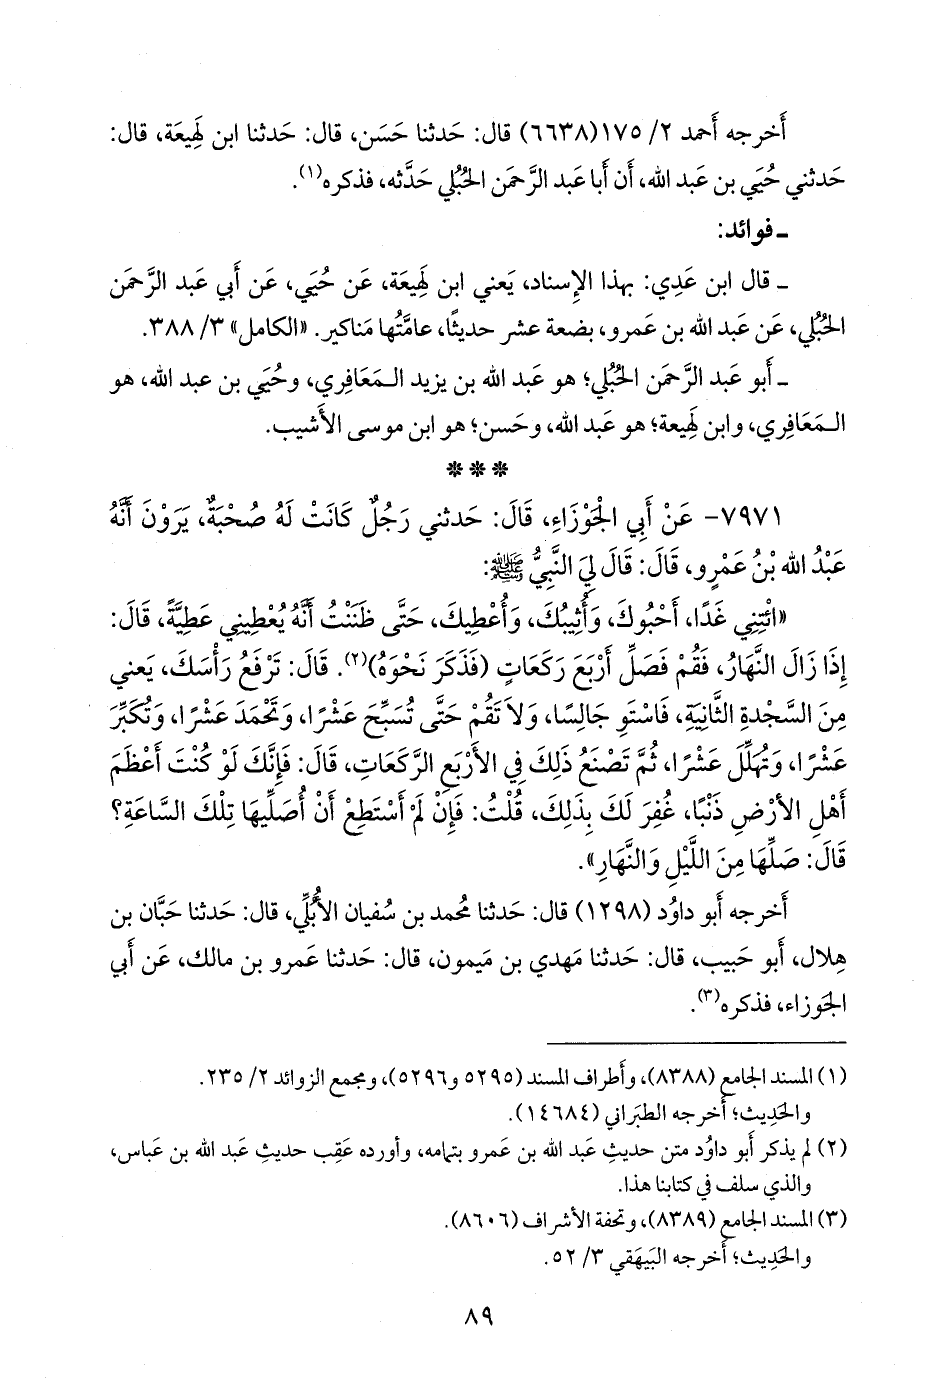 أَخرجه أَحمد ٢/ ١٧٥(٦٦٣٨) قال: حَدثنا حَسَن، قال: حَدثنا ابن لَهِيعَة، قال:
حَدثني حُيَي بن عَبد الله، أَن أَبا عَبد الرَّحمَن الحُبُلي حَدَّثه، فذكره(١).
ـ فوائد:
ـ قال ابن عَدِي: بهذا الإِسناد، يَعني ابن لَهِيعَة، عَن حُيَي، عَن أَبي عَبد الرَّحمَن
الحُبُلي، عَن عَبد الله بن عَمرو، بضعة عشر حديثًا، عامَّتُها مَناكير. «الكامل» ٣/ ٣٨٨.
ـ أَبو عَبد الرَّحمَن الحُبُلي؛ هو عَبد الله بن يزيد الـمَعَافِري، وحُيَي بن عبد الله، هو
الـمَعَافِري، وابن لَهِيعة؛ هو عَبد الله، وحَسن؛ هو ابن موسى الأَشيب.
* * *
٧٩٧١- عَنْ أَبِي الْجَوْزَاءِ، قَالَ: حَدثني رَجُلٌ كَانَتْ لَهُ صُحْبَةٌ، يَرَوْنَ أَنَّهُ
عَبْدُ الله بْنُ عَمْرٍو، قَالَ: قَالَ لِيَ النَّبِيُّ ﷺ:
«ائْتِنِي غَدًا، أَحْبُوكَ، وَأُثِيبُكَ، وَأُعْطِيكَ، حَتَّى ظَنَنْتُ أَنَّهُ يُعْطِينِي عَطِيَّةً، قَالَ:
إِذَا زَالَ النَّهَارُ، فَقُمْ فَصَلِّ أَرْبَعَ رَكَعَاتٍ (فَذَكَرَ نَحْوَهُ)(٢). قَالَ: تَرْفَعُ رَأْسَكَ، يَعني
مِنَ السَّجْدةِ الثَّانِيَةِ، فَاسْتَوِ جَالِسًا، وَلاَ تَقُمْ حَتَّى تُسَبِّحَ عَشْرًا، وَتَحْمَدَ عَشْرًا، وَتُكَبِّرَ
عَشْرًا، وَتُهَلِّلَ عَشْرًا، ثُمَّ تَصْنَعُ ذَلِكَ فِي الأَرْبَعِ الرَّكَعَاتِ، قَالَ: فَإِنَّكَ لَوْ كُنْتَ أَعْظَمَ
أَهْلِ الأَرْضِ ذَنْبًا، غُفِرَ لَكَ بِذَلِكَ، قُلْتُ: فَإِنْ لَمْ أَسْتَطِعْ أَنْ أُصَلِّيهَا تِلْكَ السَّاعَةِ؟
قَالَ: صَلِّهَا مِنَ اللَّيْلِ وَالنَّهَارِ».
أَخرجه أَبو داوُد (١٢٩٨) قال: حَدثنا مُحمد بن سُفيان الأُبُلِّي، قال: حَدثنا حَبَّان بن
هِلال، أَبو حَبيب، قال: حَدثنا مَهدي بن مَيمون، قال: حَدثنا عَمرو بن مالك، عَن أَبي
الجَوزاء، فذكره(٣).
(١) المسند الجامع (٨٣٨٨)، وأَطراف المسند (٥٢٩٥ و٥٢٩٦)، ومجمع الزوائد ٢/ ٢٣٥.
والحَدِيث؛ أَخرجه الطبَراني (١٤٦٨٤).
(٢) لم يذكر أَبو داوُد متن حديثِ عَبد الله بن عَمرو بتمامه، وأَورده عَقِب حديثِ عَبد الله بن عَباس،
والذي سلف في كتابنا هذا.
(٣) المسند الجامع (٨٣٨٩)، وتحفة الأَشراف (٨٦٠٦).
والحَدِيث؛ أَخرجه البَيهَقي ٣/ ٥٢.
٨٩